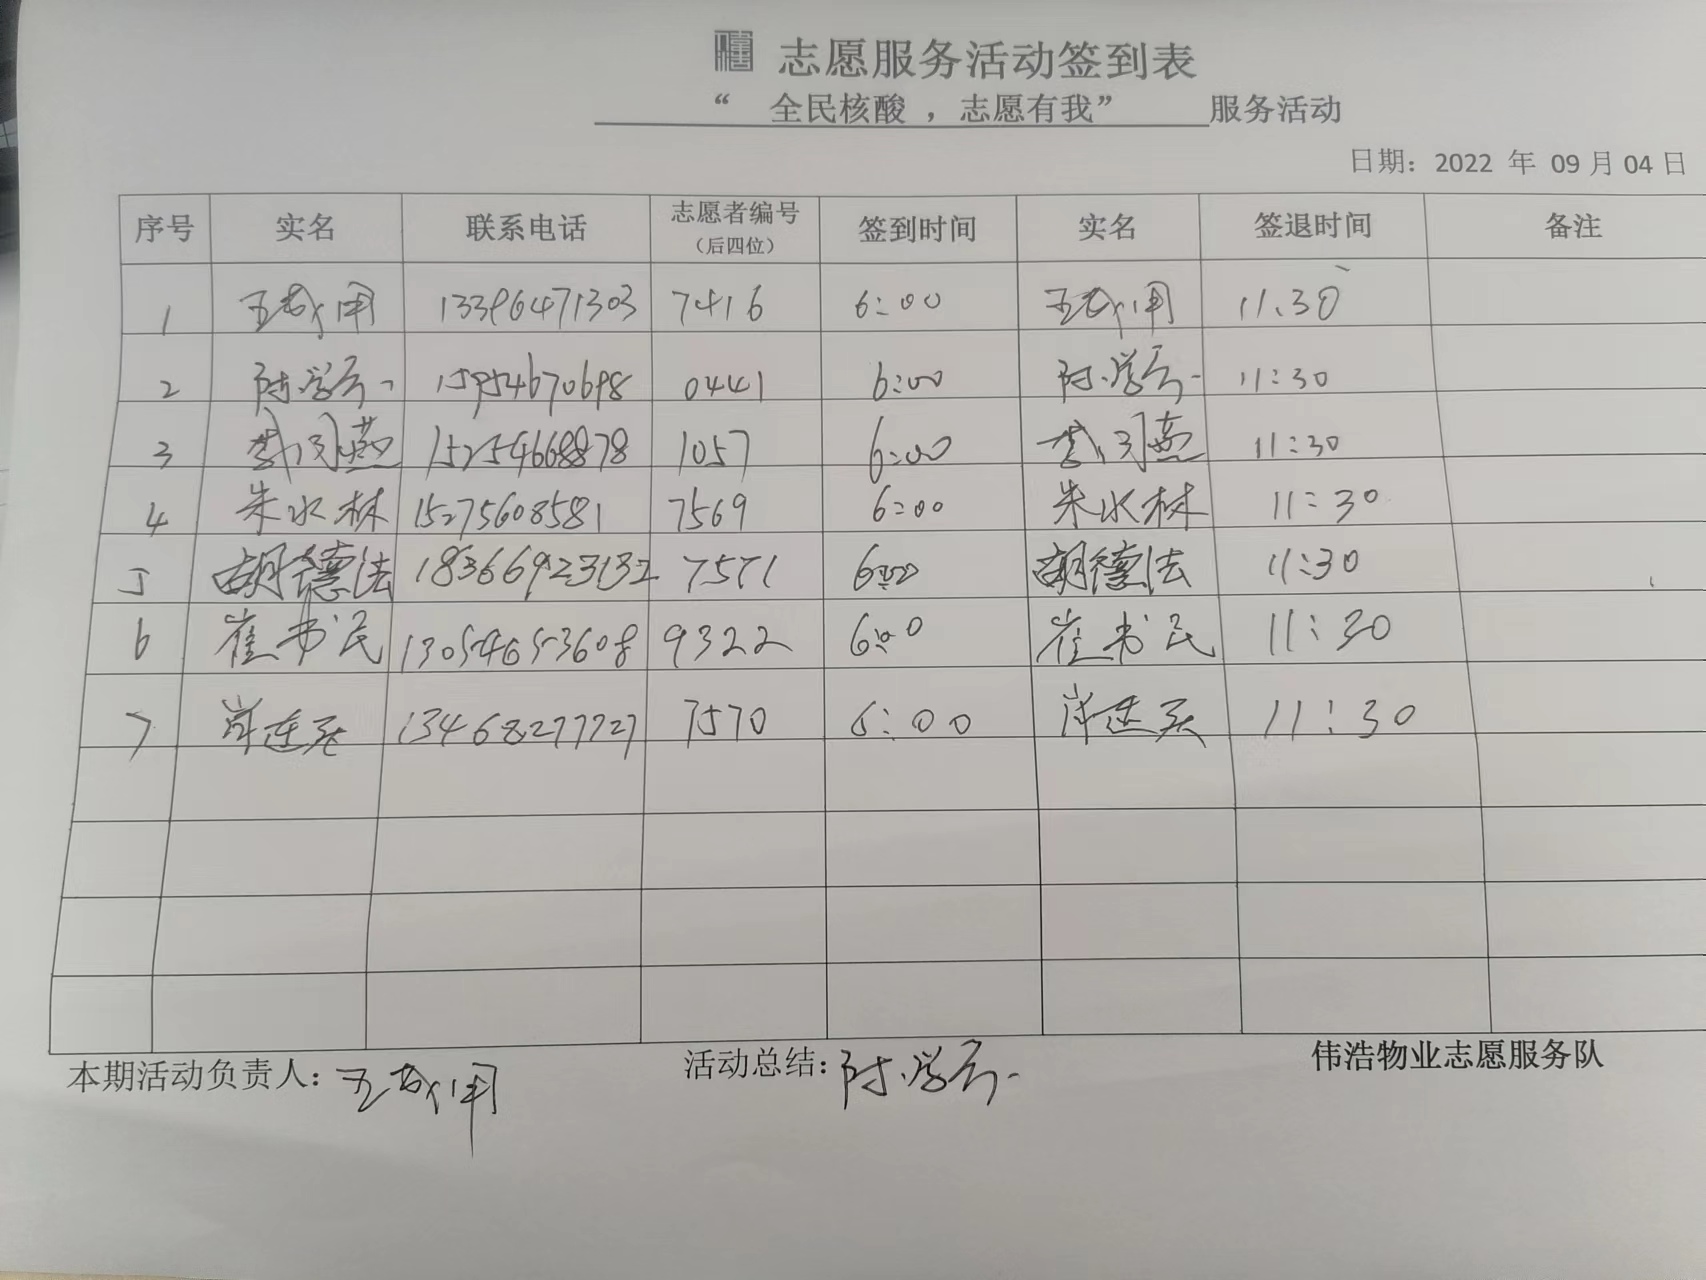 志愿服务活动签到表
“ 全民核酸 ，志愿有我” 服务活动
日期：2022 年 09 月 04 日
序号 实名 联系电话 志愿者编号（后四位） 签到时间 实名 签退时间 备注
1 13396471303 7416 6:00 11.30
2 15954670698 0441 6:00 11:30
3 15254668878 1057 6:00 11:30
4 朱水林 15275608581 7569 6:00 朱水林 11:30
5 胡德法 18366923132 7571 6:00 胡德法 11:30
6 崔书民 13054653608 9322 6:00 崔书民 11:30
7 13468277727 7570 6:00 11:30
本期活动负责人： 活动总结： 伟浩物业志愿服务队